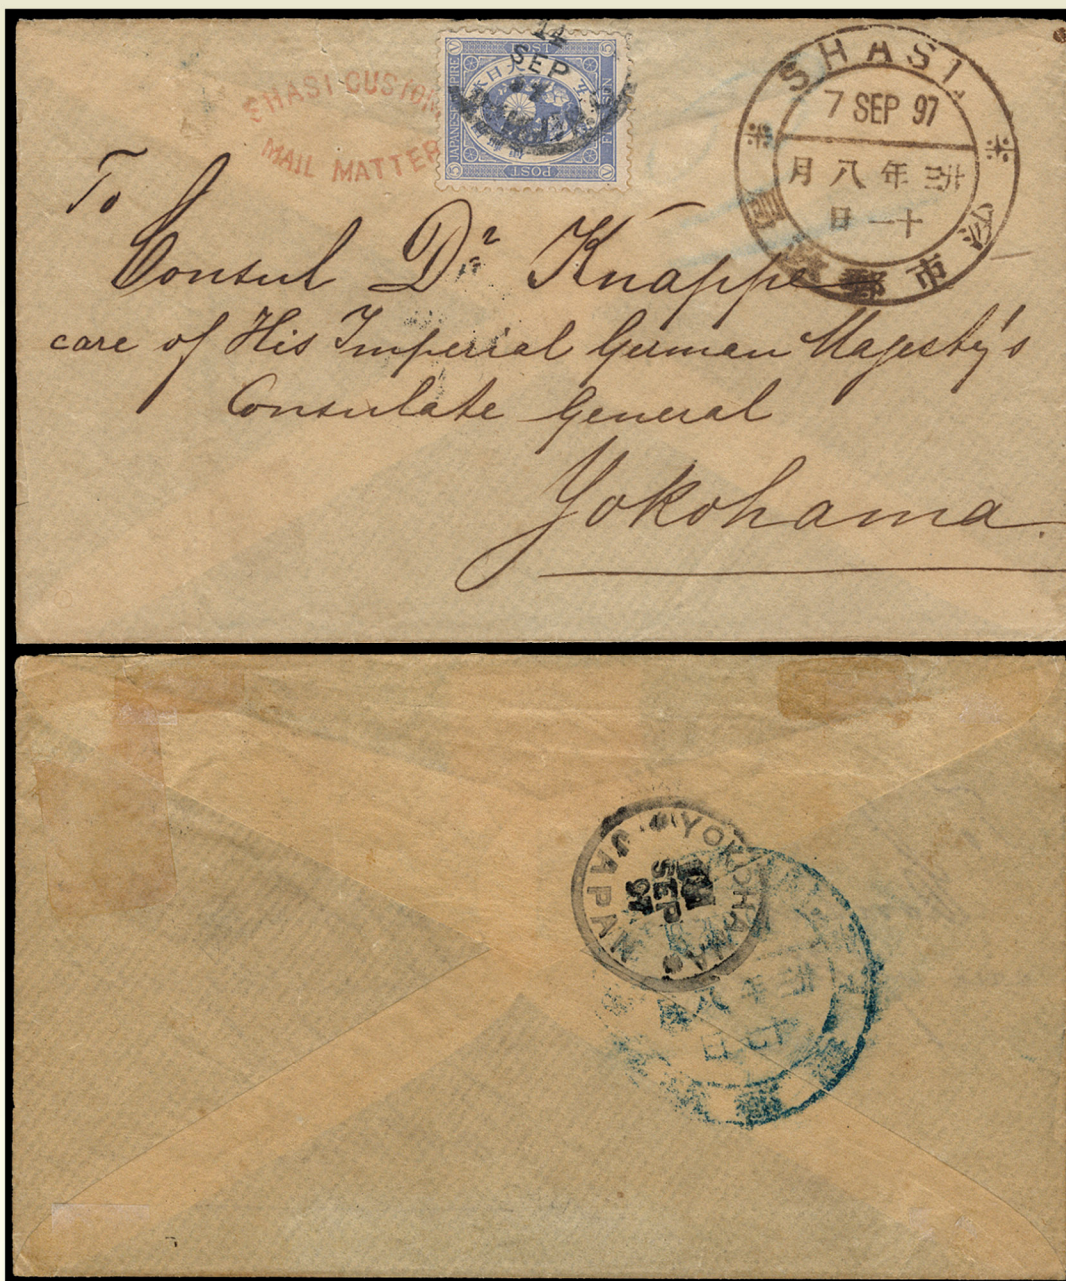 SHASI CUSTOM
MAIL MATTER
JAPANESE EMPIRE
POST
5 SEN
POST
14
SEP
SHASI.
7 SEP 97
月八年三廿
日一十
沙市郵政局
To
Consul Dr. Knappe
care of His Imperial German Magesty's
Consulate General
Yokohama.
YOKOHAMA
JAPAN
SEP
97